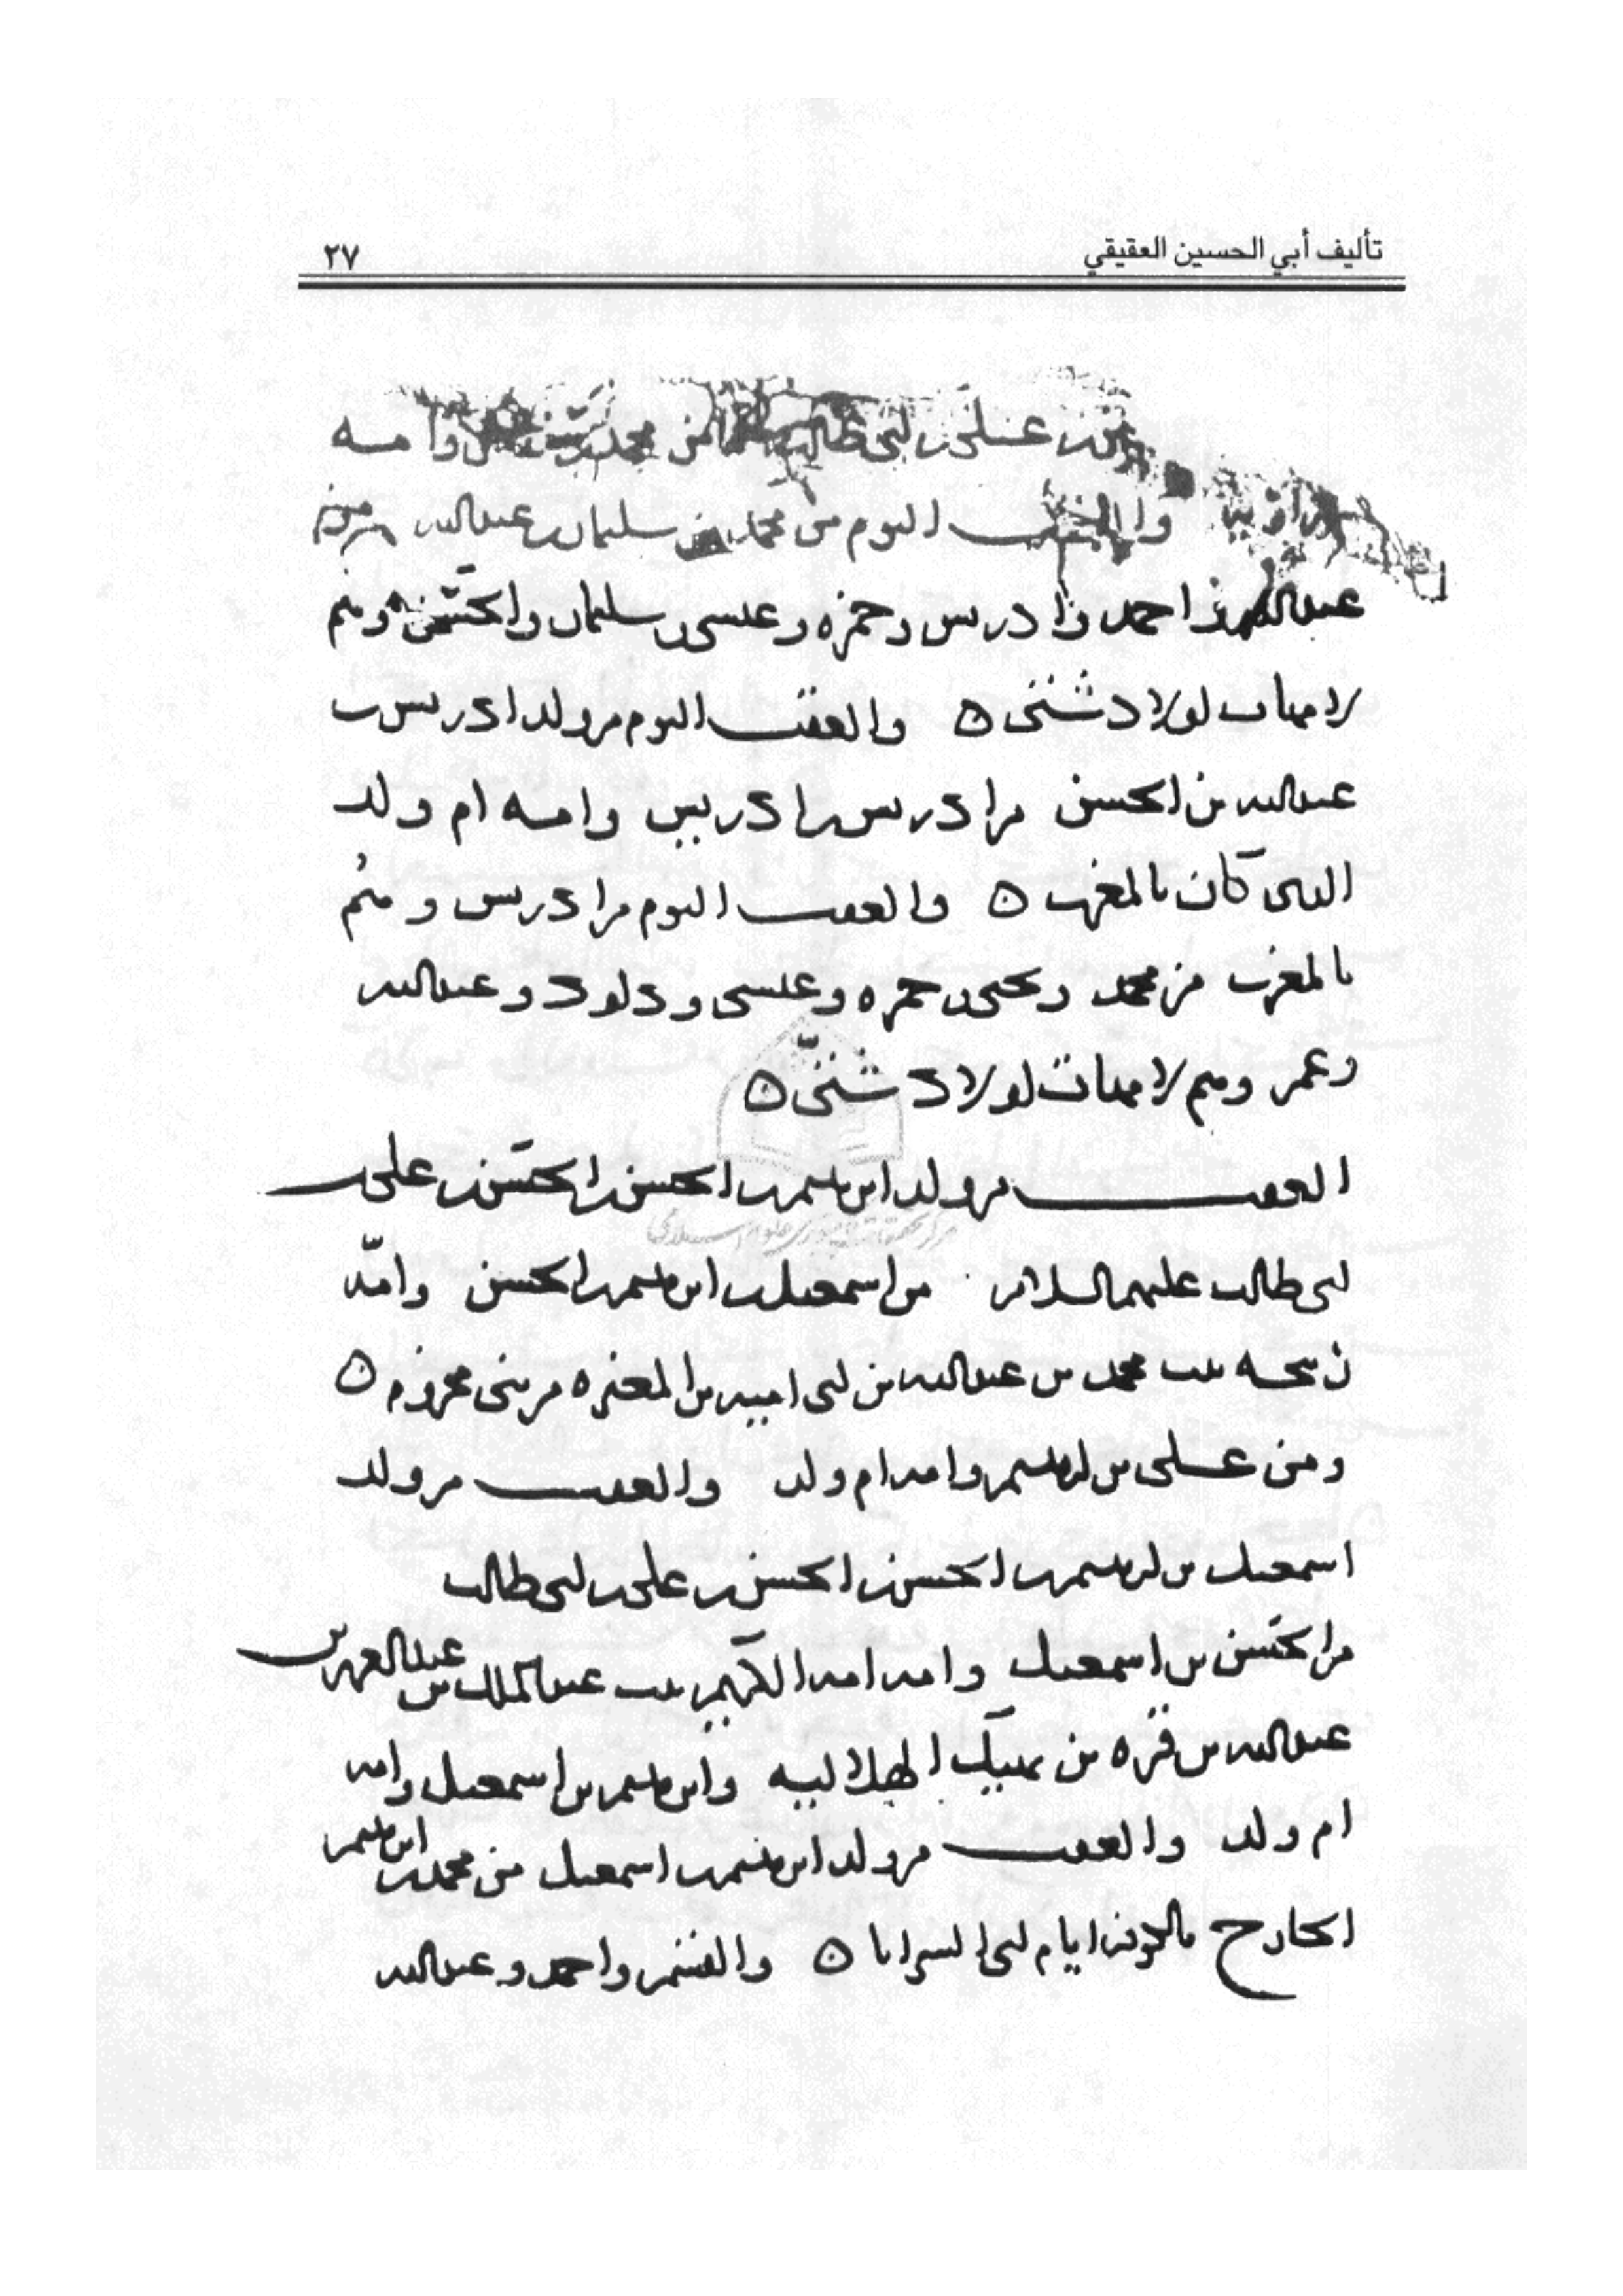 تأليف أبي الحسين العقيقي
٢٧
بن علي بن ابي طالب من محمد وامه
والعقب اليوم من محمد بن سليمان بن عبدالله من
عبدالله واحمد وادريس وحمزه وعيسى وسليمان والحسن وهم
لامهات لاولاد شتى ٥ والعقب اليوم من ولد ادريس بن
عبدالله بن الحسن من ادريس بن ادريس وامه ام ولد
الذى كان بالمغرب ٥ والعقب اليوم من ادريس وهم
بالمغرب من محمد ويحيى وحمزه وعيسى وداود وعبدالله
وعمر وهم لامهات لاولاد شتى ٥
العقب من ولد ابراهيم بن الحسن بن الحسن بن علي بن
ابى طالب عليهم السلام من اسمعيل بن ابراهيم بن الحسن وامه
ربيحه بنت محمد بن عبدالله بن ابى اميه بن المغيره من بنى مخزوم ٥
ومن على بن ابراهيم وامه ام ولد والعقب من ولد
اسمعيل بن ابراهيم بن الحسن بن الحسن بن على بن ابى طالب
من الحسن بن اسمعيل وامه امه الكريم بنت عبدالملك بن عبدالعزيز بن
عبدالله بن قره بن نهيك الهلاليه وابراهيم بن اسمعيل وامه
ام ولد والعقب من ولد ابراهيم بن اسمعيل من محمد بن ابراهيم
الخارج بالكوفه ايام ابى السرايا ٥ والقسم واحمد وعبدالله